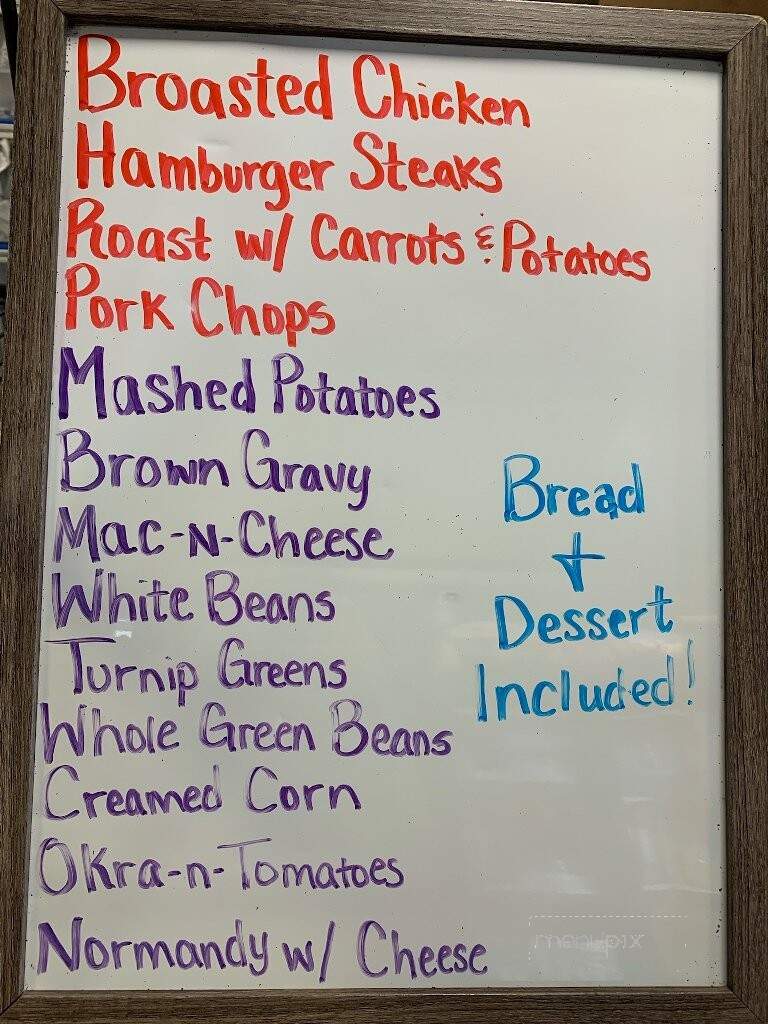 Broasted Chicken
Hamburger Steaks
Roast w/ Carrots & Potatoes
Pork Chops
Mashed Potatoes
Brown Gravy
Mac-N-Cheese
White Beans
Turnip Greens
Whole Green Beans
Creamed Corn
Okra-n-Tomatoes
Normandy w/ Cheese
Bread
+
Dessert
Included!
menupix